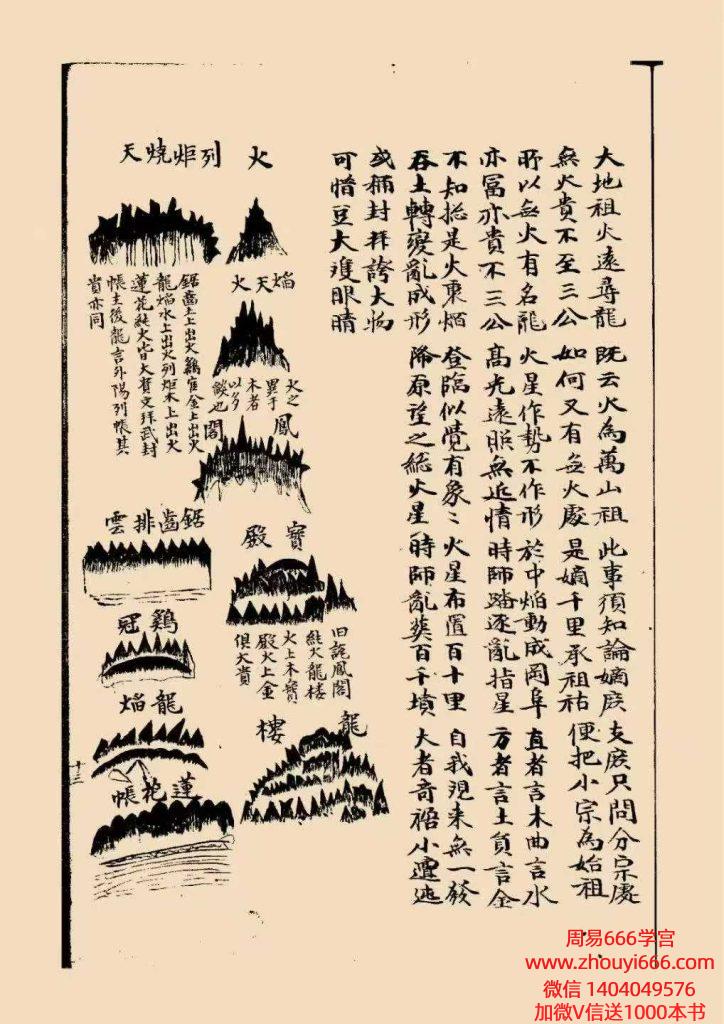 大地祖火遠尋龍 既云火為萬山祖 此事須知論嫡庶 支庶只問分宗處
無火貴不至三公 如何又有無火處 是嫡千里承祖祜 便把小宗為始祖
所以無火有名龍 火星作勢不作形 於中焰動成岡阜 直者言木曲言水
亦冨亦貴不三公 高光遠照無近情 時師踏逐亂指星 方者言土負言金
不知捴是火裏焰 登臨似覺有象〻 火星布置百十里 自我現来無一發
吞土轉變亂成形 降原望之総火星 時師亂塟百千墳 大者奇禍小遭迍
或稱封拜誇大物
可惜豆大眼睛
火
焰天火
火之
異于
木者
以多
燄也
鳳閣
寶殿
旧説鳳閣
純火龍樓
火上木寶
殿火上金
俱大貴
龍樓
列炬燒天
鋸齒土上出火鷄金上出火
龍焰水上出火列炬木上出火
蓮花純火皆大貴文拜武封
帳主後龍言外陽列帳其
貴亦同
鋸齒排雲
鷄冠
龍焰
蓮花帳
十三
周易666学宫
www.zhouyi666.com
微信 1404049576
加微V信送1000本书